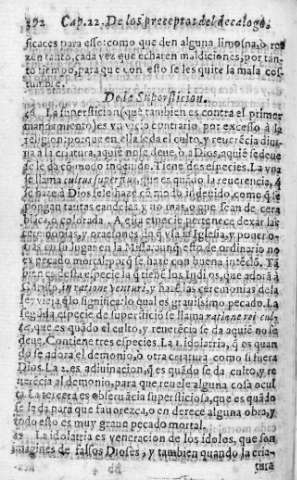 392 Cap. 22. De los preceptos del decalogo.
ficaces para esso: como que den alguna limosna, o re-
zen tanto, cada vez que echaren maldiciones, por tan-
to tiempo, para que con esto se les quite la mala cos-
tumbre.
De la Supersticion.
La supersticion (que tambien es contra el primer
mandamiento) es vn vicio contrario, por excesso à la
religion: porque en ella se da el culto, y reuerẽcia diui-
na a la criatura, a quiẽ no se deue, o a Dios, a quiẽ se deue
se le da cõ modo indeuido. Tiene dos especies. La vna
se llama cultus superfluus, que es quãdo la reuerencia, q̃
se haze a Dios se le haze cõ modo indeuido, como q̃ se
pongan tantas candelas, y no mas, o que sean de cera
blãca, o colorada. A esta especie pertenece dexar las
ceremonias, y oraciones de q̃ vsa la Iglesia, y poner o-
tras en su lugar en la Missa, aunq̃ esto de ordinario no
es pecado mortal; porq̃ se haze con buena intẽciõ.
especie la q̃ tienẽ los Indios, que adorã à
las ceremonias de la
ley vieja q̃ lo significarõ lo qual es grauissimo pecado. La
segũda especie de supersticiõ se llama ratione rei cul-
que es quãdo el culto, y reuerẽcia se da a quiẽ no se
deue. Contiene tres especies. La 1. idolatria, q̃ es quan
do se adora el demonio, o otra criatura como si fuera
Dios. La 2. es adiuinacion, q̃ es quãdo se da culto, y re
uerẽcia al demonio, para que reuele alguna cosa ocul
ta. La tercera es obseruãcia supersticiosa, que es quãdo
se le da para que fauorezca, o enderece alguna obra, y
todo esto es muy graue pecado mortal.
La idolatria es veneracion de los idolos, que son
imagines de falsos Dioses, y tambien quando la cria-
tura